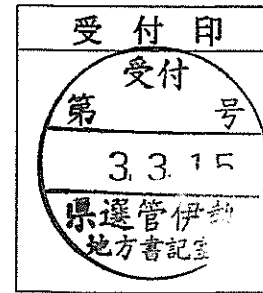 受付印
受付
第 号
3.3.15
県選管伊
地方書記室